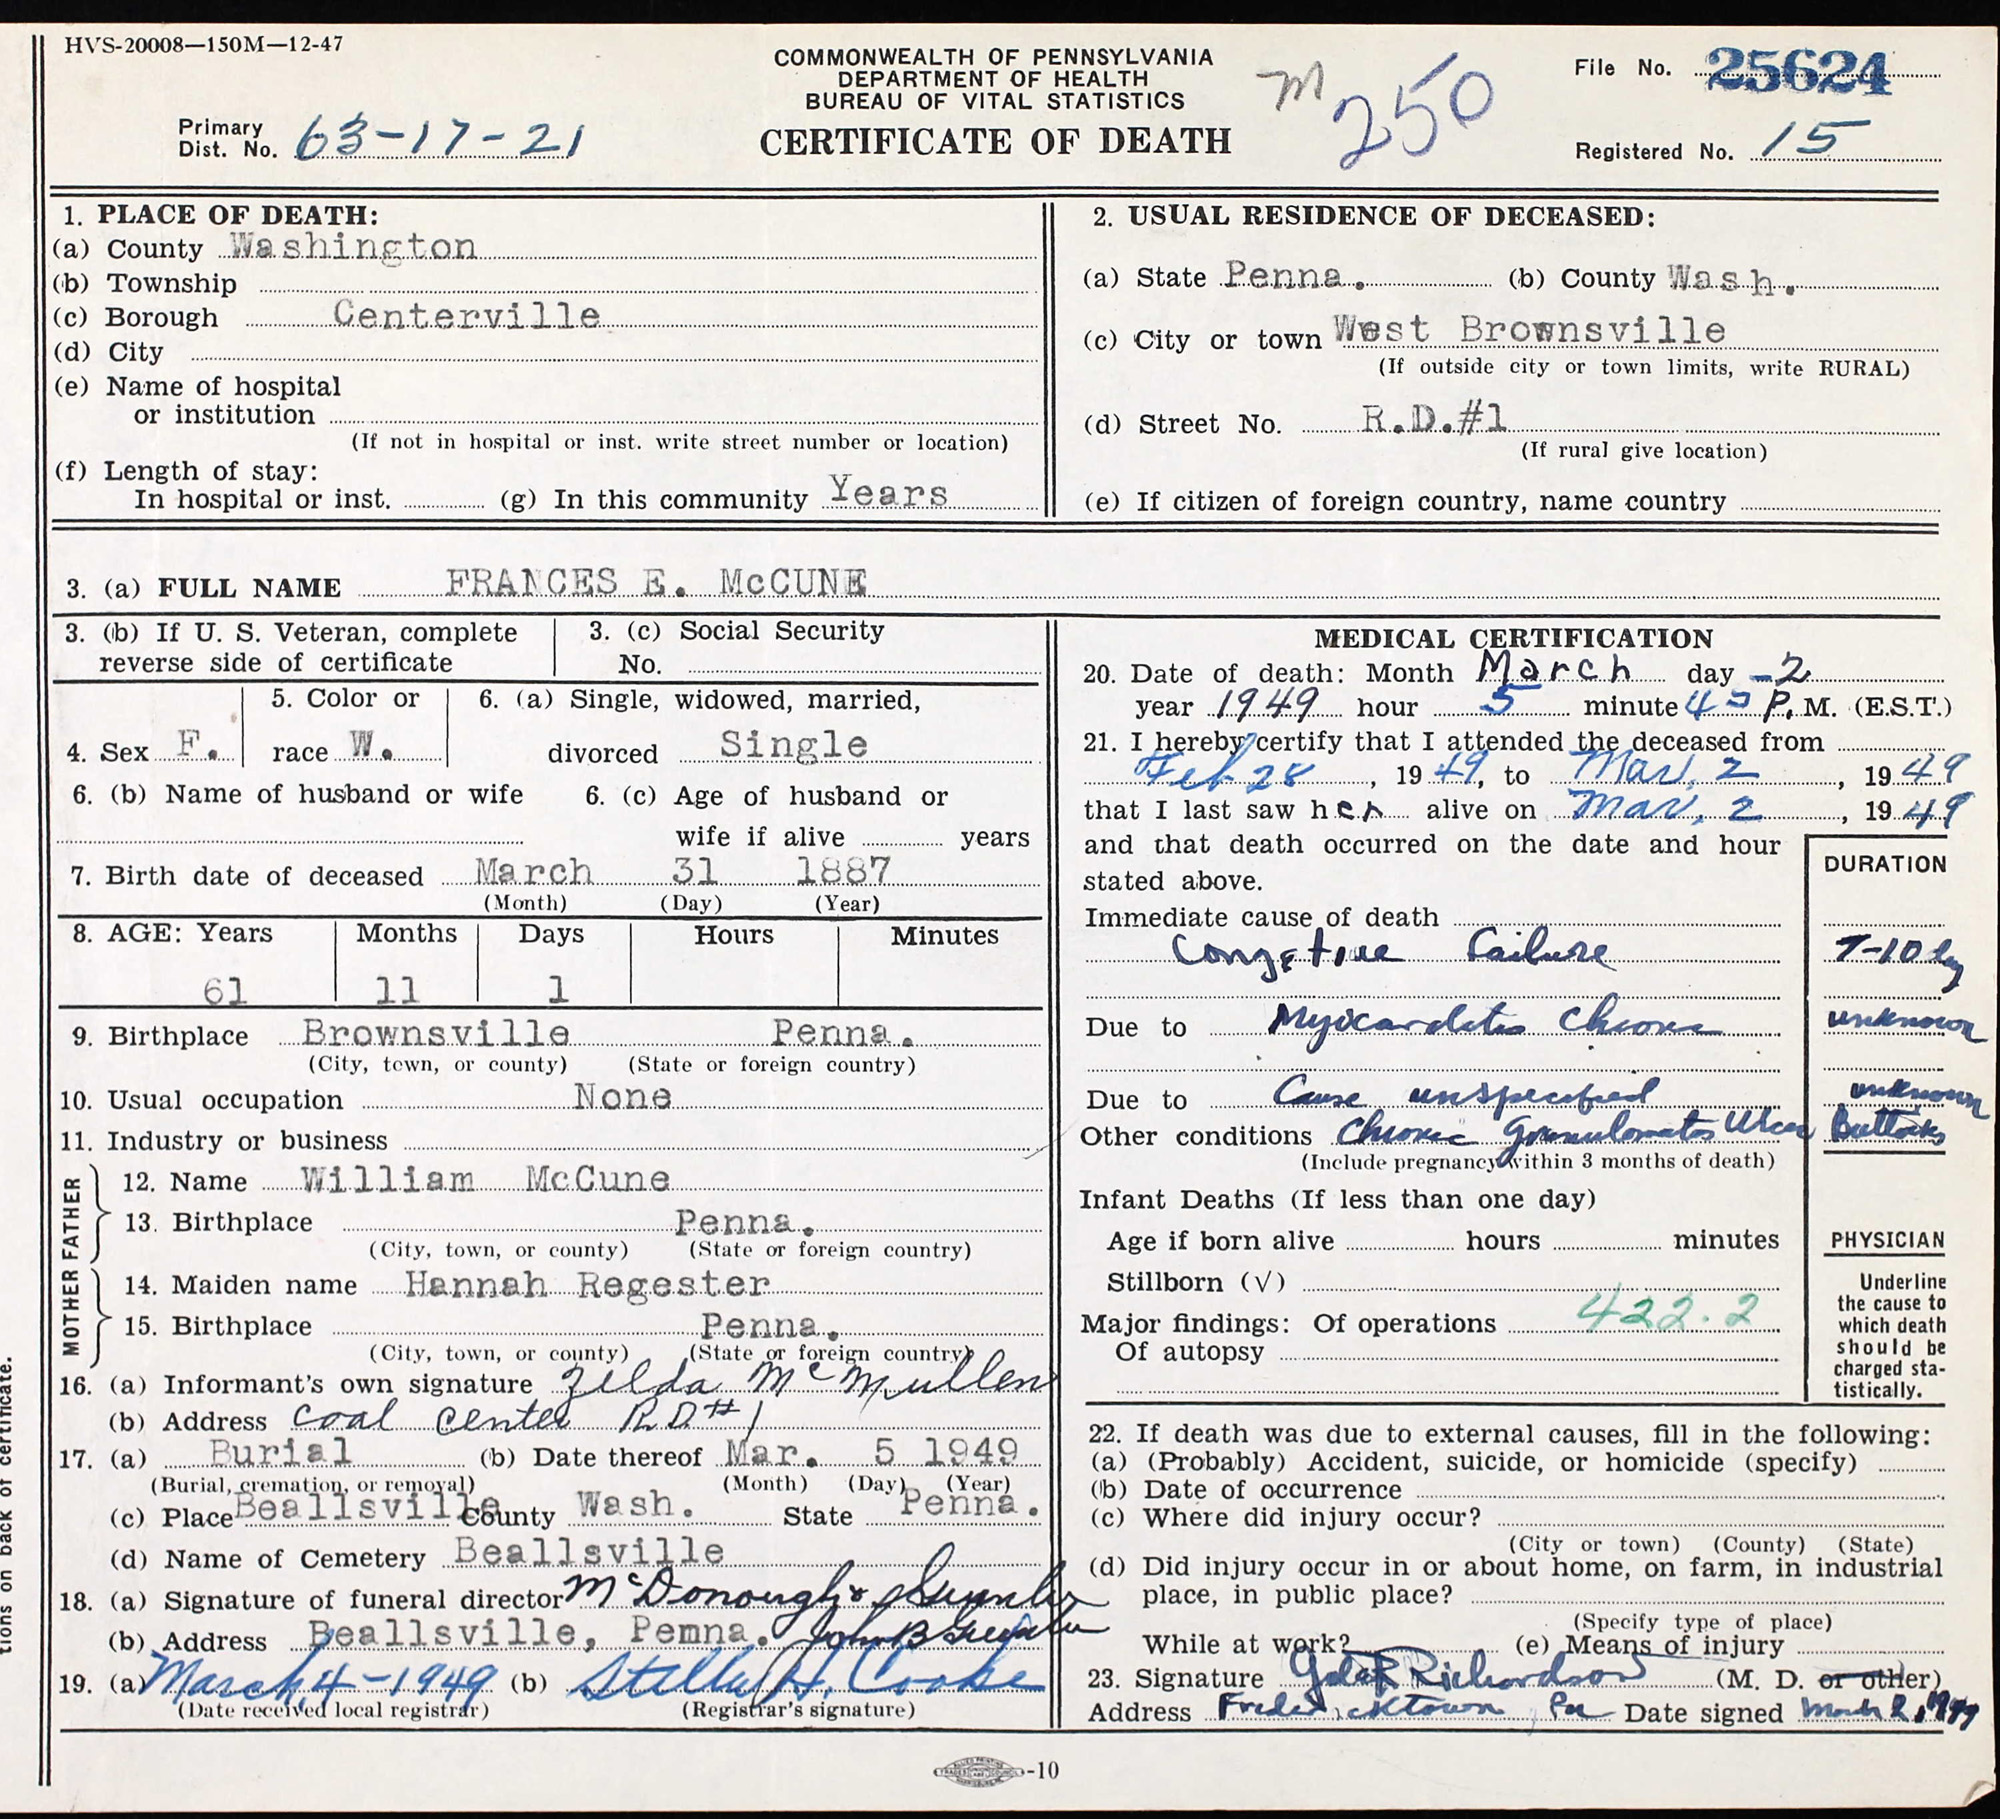 HVS-20008—150M—12-47
COMMONWEALTH OF PENNSYLVANIA
DEPARTMENT OF HEALTH
BUREAU OF VITAL STATISTICS
CERTIFICATE OF DEATH
m 250
File No. 25624
Primary Dist. No. 63-17-21
Registered No. 15
1. PLACE OF DEATH:
(a) County Washington
(b) Township
(c) Borough Centerville
(d) City
(e) Name of hospital
or institution
(If not in hospital or inst. write street number or location)
(f) Length of stay:
In hospital or inst. (g) In this community Years
2. USUAL RESIDENCE OF DECEASED:
(a) State Penna. (b) County Wash.
(c) City or town West Brownsville
(If outside city or town limits, write RURAL)
(d) Street No. R.D.#1
(If rural give location)
(e) If citizen of foreign country, name country
3. (a) FULL NAME FRANCES E. McCUNE
3. (b) If U. S. Veteran, complete
reverse side of certificate
3. (c) Social Security
No.
4. Sex F.
5. Color or
race W.
6. (a) Single, widowed, married,
divorced Single
6. (b) Name of husband or wife
6. (c) Age of husband or
wife if alive years
7. Birth date of deceased March 31 1887
(Month) (Day) (Year)
8. AGE: Years Months Days Hours Minutes
61 11 1
9. Birthplace Brownsville Penna.
(City, town, or county) (State or foreign country)
10. Usual occupation None
11. Industry or business
FATHER
12. Name William McCune
13. Birthplace Penna.
(City, town, or county) (State or foreign country)
MOTHER
14. Maiden name Hannah Regester
15. Birthplace Penna.
(City, town, or county) (State or foreign country)
16. (a) Informant's own signature Zelda McMullen
(b) Address Coal Center R.D #1
17. (a) Burial (b) Date thereof Mar. 5 1949
(Burial, cremation, or removal) (Month) (Day) (Year)
(c) Place Beallsville County Wash. State Penna.
(d) Name of Cemetery Beallsville
18. (a) Signature of funeral director McDonough &
(b) Address Beallsville, Pemna. John B
19. (a) March 4-1949 (b) Stella H. Cooke
(Date received local registrar) (Registrar's signature)
MEDICAL CERTIFICATION
20. Date of death: Month March day -2
year 1949 hour 5 minute 45 P. M. (E.S.T.)
21. I hereby certify that I attended the deceased from
Feb 28, 1949, to Mar. 2, 1949
that I last saw her alive on Mar. 2, 1949
and that death occurred on the date and hour
stated above.
DURATION
Immediate cause of death
Congstive Failure 7-10 day
Due to Myocarditis Chronic unknown
Due to Cause unspecified unknown
Other conditions Chronic Granulomatos Ulcer Buttocks
(Include pregnancy within 3 months of death)
Infant Deaths (If less than one day)
Age if born alive hours minutes
Stillborn (√)
Major findings: Of operations 422.2
Of autopsy
PHYSICIAN
Underline
the cause to
which death
should be
charged sta-
tistically.
22. If death was due to external causes, fill in the following:
(a) (Probably) Accident, suicide, or homicide (specify)
(b) Date of occurrence
(c) Where did injury occur?
(City or town) (County) (State)
(d) Did injury occur in or about home, on farm, in industrial
place, in public place?
(Specify type of place)
While at work? (e) Means of injury
23. Signature Richardson (M. D. or other)
Address Fredericktown, Pa Date signed March 2, 1949
tions on back of certificate.
-10